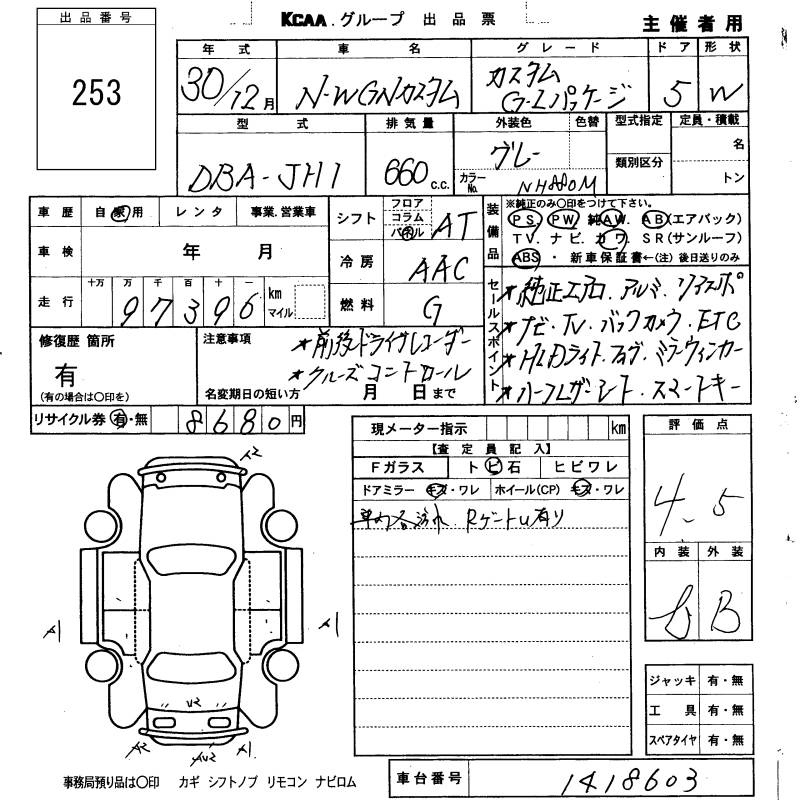 出品番号
253
KCAA.グループ 出品票
主催者用
年式 車名 グレード ドア 形状
30/12月 N-WGNカスタム カスタム G-Lパッケージ 5 W
型式 排気量 外装色 色替 型式指定 定員・積載
DBA-JH1 660c.c. グレー 類別区分 名
カラーNo. トン
車歴 自家用 レンタ 事業.営業車
シフト フロア コラム パネル AT
装備品 ※純正のみ〇印をつけて下さい。
PS PW 純AW. AB(エアバック)
TV. ナビ. カワ. SR(サンルーフ)
ABS ・ 新車保証書←(注)後日送りのみ
車検 年 月
冷房 AAC
走行 十万 万 千 百 十 一
97396 km マイル
燃料 G
セールスポイント
★純正エアロ.アルミ.リアスポ
★ナビ.TV.バックカメラ.ETC
★HIDライト.フォグ.ミラーウィンカー
★ハーフレザーシート.スマートキー
修復歴 箇所
有
(有の場合は〇印を)
注意事項
★前後ドライブレコーダー
★クルーズコントロール
名変期日の短い方 月 日まで
リサイクル券 有・無 8680円
現メーター指示 km
【査定員記入】
Fガラス トビ石 ヒビワレ
ドアミラー キズ・ワレ ホイール(CP) キズ・ワレ
車内汚れ Rゲートu有り
評価点
4.5
内装 外装
B
ジャッキ 有・無
工具 有・無
スペアタイヤ 有・無
A2
A1
A1
U2
A2
AU2
A1
事務局預り品は〇印 カギ シフトノブ リモコン ナビロム
車台番号 1418603